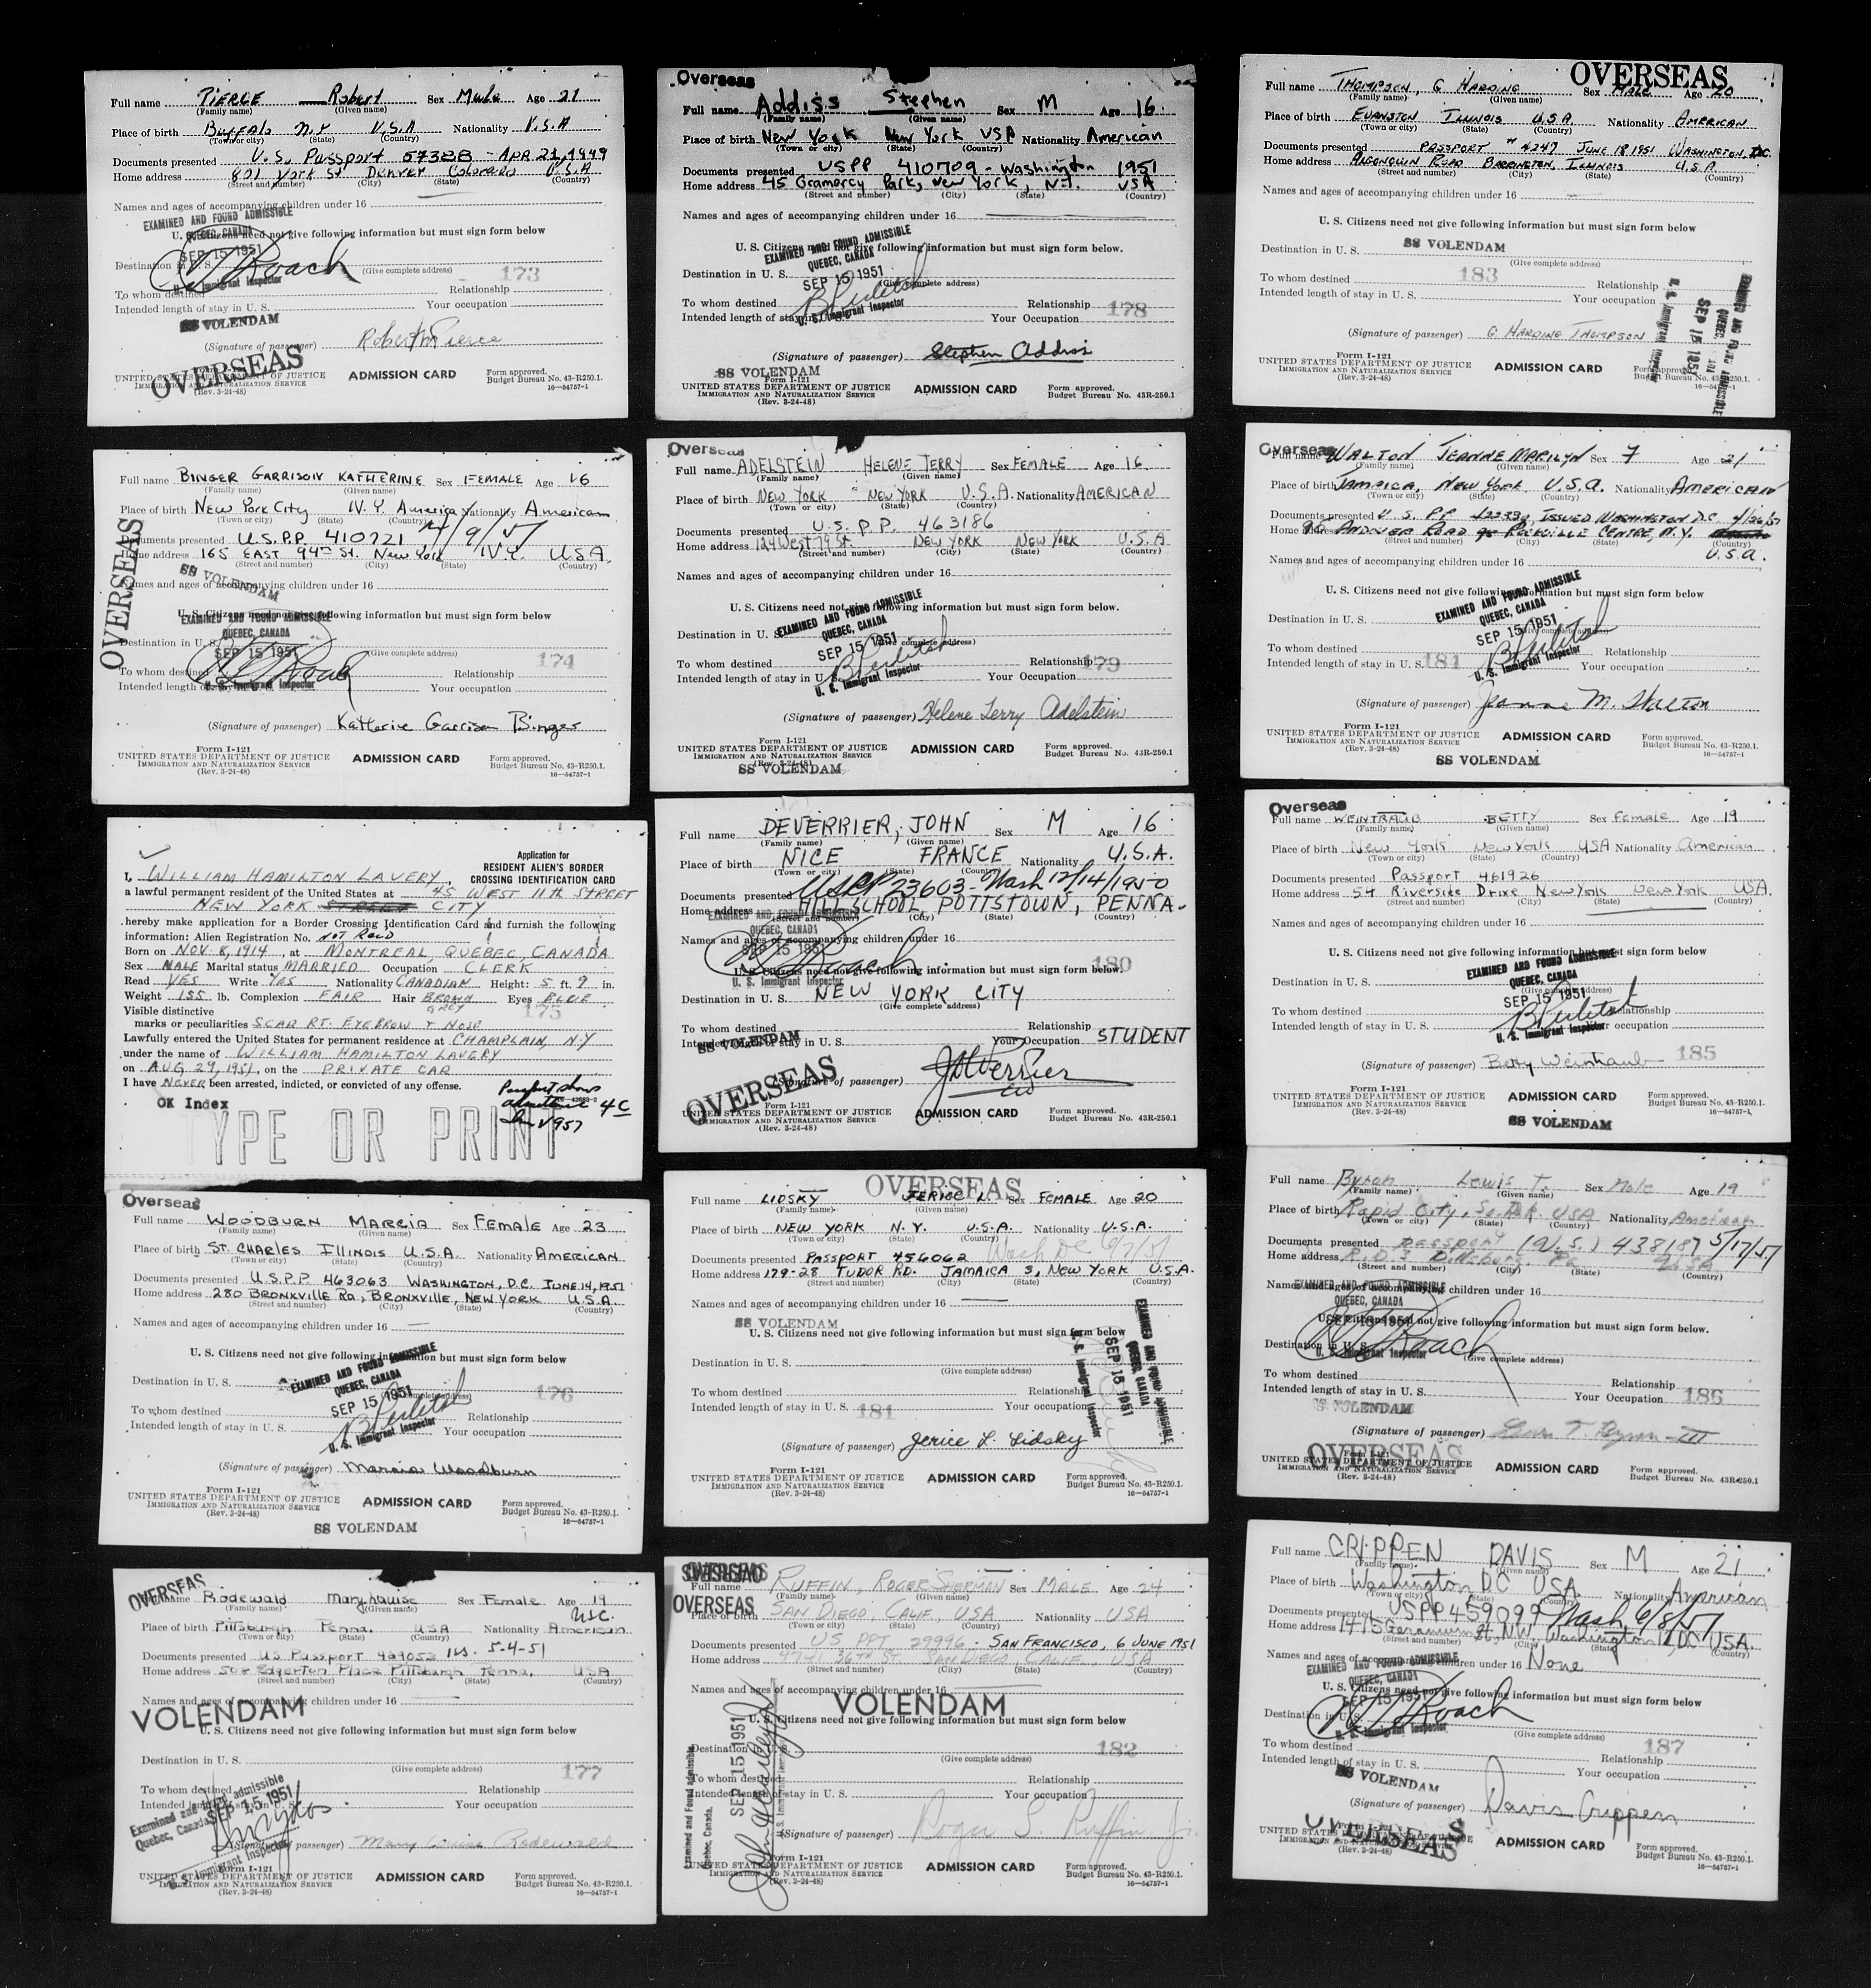 Full name PIERCE Robert Sex Male Age 21
(Family name) (Given name)
Place of birth Buffalo N.Y U.S.A Nationality U.S.A
(Town or city) (State) (Country)
Documents presented U.S. Passport 57328 - APR 21, 1949
Home address 801 York St Denver Colorado U.S.A
(Street and number) (City) (State) (Country)
Names and ages of accompanying children under 16
EXAMINED AND FOUND ADMISSIBLE
QUEBEC, CANADA
U. S. Citizens need not give following information but must sign form below
SEP 15 1951
Destination in U. S.
Roach
(Give complete address)
173
U. S. Immigrant Inspector
To whom destined Relationship
Intended length of stay in U. S. Your occupation
SS VOLENDAM
(Signature of passenger) Robert Pierce
OVERSEAS
UNITED STATES DEPARTMENT OF JUSTICE
IMMIGRATION AND NATURALIZATION SERVICE
(Rev. 3-24-48)
ADMISSION CARD
Form approved.
Budget Bureau No. 43-R250.1.
16—54757-1
Full name BINGER GARRISON KATHERINE Sex FEMALE Age 16
(Family name) (Given name)
Place of birth New York City N.Y. America Nationality American
(Town or city) (State) (Country)
Documents presented U.S.P.P. 410721 4/9/51
Home address 165 EAST 94th St. New York N.Y. USA
(Street and number) (City) (State) (Country)
OVERSEAS
SS VOLENDAM
Names and ages of accompanying children under 16
U. S. Citizens need not give following information but must sign form below
EXAMINED AND FOUND ADMISSIBLE
QUEBEC, CANADA
Destination in U. S.
SEP 15 1951
(Give complete address)
Roach
174
To whom destined Relationship
Intended length of Your occupation
U. S. Immigrant Inspector
(Signature of passenger) Katherine Garrison Binger
Form I-121
UNITED STATES DEPARTMENT OF JUSTICE
IMMIGRATION AND NATURALIZATION SERVICE
(Rev. 3-24-48)
ADMISSION CARD
Form approved.
Budget Bureau No. 43-R250.1.
16—54757-1
Application for
RESIDENT ALIEN'S BORDER
CROSSING IDENTIFICATION CARD
I, WILLIAM HAMILTON LAVERY,
a lawful permanent resident of the United States at 45 WEST 11th STREET
NEW YORK CITY
hereby make application for a Border Crossing Identification Card and furnish the following
information: Alien Registration No. NOT RECD
Born on NOV. 8, 1914, at MONTREAL, QUEBEC, CANADA
Sex MALE Marital status MARRIED Occupation CLERK
Read YES Write YES Nationality CANADIAN Height: 5 ft. 9 in.
Weight 155 lb. Complexion FAIR Hair BROWN Eyes BLUE
GREY
175
Visible distinctive
marks or peculiarities SCAR RT. EYEBROW + NOSE
Lawfully entered the United States for permanent residence at CHAMPLAIN, N.Y
under the name of WILLIAM HAMILTON LAVERY
on AUG 29, 1951, on the PRIVATE CAR
I have NEVER been arrested, indicted, or convicted of any offense.
Passport shows
admitted 4C
OK Index
TYPE OR PRINT
Overseas
Full name WOODBURN MARCIA Sex FEMALE Age 23
(Family name) (Given name)
Place of birth ST. CHARLES ILLINOIS U.S.A. Nationality AMERICAN
(Town or city) (State) (Country)
Documents presented U.S.P.P. 463063 WASHINGTON, D.C. JUNE 14, 1951
Home address 280 BRONXVILLE RD., BRONXVILLE, NEW YORK U.S.A.
(Street and number) (City) (State) (Country)
Names and ages of accompanying children under 16
U. S. Citizens need not give following information but must sign form below
EXAMINED AND FOUND ADMISSIBLE
QUEBEC, CANADA
Destination in U. S.
SEP 15 1951
176
To whom destined Relationship
Intended length of stay in U. S. Your occupation
U. S. Immigrant Inspector
(Signature of passenger) Marcia Woodburn
Form I-121
UNITED STATES DEPARTMENT OF JUSTICE
IMMIGRATION AND NATURALIZATION SERVICE
(Rev. 3-24-48)
ADMISSION CARD
Form approved.
Budget Bureau No. 43-R250.1.
16—54757-1
SS VOLENDAM
OVERSEAS
name Rodewald Mary Louise Sex Female Age 19
(Family name) (Given name)
USC.
Place of birth Pittsburgh Penna. USA Nationality American
(Town or city) (State) (Country)
Documents presented US Passport 429053 5-4-51
Home address 508 Edgerton Place Pittsburgh Penna. USA
(Street and number) (City) (State) (Country)
Names and ages of accompanying children under 16
VOLENDAM
U. S. Citizens need not give following information but must sign form below
Destination in U. S.
(Give complete address)
177
To whom destined Relationship
Intended Your occupation
Examined and found admissible
Quebec, Canada
SEP 15 1951
U. S. Immigrant Inspector
(Signature of passenger) Mary Louise Rodewald
Form I-121
UNITED STATES DEPARTMENT OF JUSTICE
IMMIGRATION AND NATURALIZATION SERVICE
(Rev. 3-24-48)
ADMISSION CARD
Form approved.
Budget Bureau No. 43-R250.1.
16—54757-1
Overseas
Full name Addiss Stephen Sex M Age 16
(Family name) (Given name)
Place of birth New York New York USA Nationality American
(Town or city) (State) (Country)
Documents presented USPP 410709 - Washington 1951
Home address 45 Gramercy Park, New York, N.Y. USA
(Street and number) (City) (State) (Country)
Names and ages of accompanying children under 16
U. S. Citizens need not give following information but must sign form below.
EXAMINED AND FOUND ADMISSIBLE
QUEBEC, CANADA
Destination in U. S.
SEP 15 1951
(Give complete address)
To whom destined Relationship
178
Intended length of stay in U. S. Your Occupation
U. S. Immigrant Inspector
(Signature of passenger) Stephen Addiss
SS VOLENDAM
Form I-121
UNITED STATES DEPARTMENT OF JUSTICE
IMMIGRATION AND NATURALIZATION SERVICE
(Rev. 3-24-48)
ADMISSION CARD
Form approved.
Budget Bureau No. 43R-250.1
Overseas
Full name ADELSTEIN HELENE TERRY Sex FEMALE Age 16
(Family name) (Given name)
Place of birth NEW YORK NEW YORK U.S.A. Nationality AMERICAN
(Town or city) (State) (Country)
Documents presented U.S. P.P. 463186
Home address 124 West 79 St. NEW YORK NEW YORK U.S.A
(Street and number) (City) (State) (Country)
Names and ages of accompanying children under 16
U. S. Citizens need not give following information but must sign form below.
EXAMINED AND FOUND ADMISSIBLE
QUEBEC, CANADA
Destination in U. S.
SEP 15 1951
(Give complete address)
To whom destined Relationship 179
Intended length of stay in U. S. Your Occupation
U. S. Immigrant Inspector
(Signature of passenger) Helene Terry Adelstein
Form I-121
UNITED STATES DEPARTMENT OF JUSTICE
IMMIGRATION AND NATURALIZATION SERVICE
(Rev. 3-24-48)
ADMISSION CARD
Form approved.
Budget Bureau No. 43R-250.1
SS VOLENDAM
Full name DEVERRIER, JOHN Sex M Age 16
(Family name) (Given name)
Place of birth NICE FRANCE Nationality U.S.A.
(Town or city) (State) (Country)
Documents USPP 23603 - Wash 12/14/1950
Home address HILL SCHOOL POTTSTOWN, PENNA.
(Street and number) (City) (State) (Country)
EXAMINED AND FOUND ADMISSIBLE
QUEBEC, CANADA
Names and ages of accompanying children under 16
SEP 15 1951
Roach
180
U. S. Citizens need not give following information but must sign form below.
U. S. Immigrant Inspector
Destination in U. S. NEW YORK CITY
(Give complete address)
To whom destined Relationship
Intended length of stay in U. S. Your Occupation STUDENT
SS VOLENDAM
OVERSEAS
(Signature of passenger)
Form I-121
UNITED STATES DEPARTMENT OF JUSTICE
IMMIGRATION AND NATURALIZATION SERVICE
(Rev. 3-24-48)
ADMISSION CARD
Form approved.
Budget Bureau No. 43R-250.1
OVERSEAS
Full name LIDSKY JERICE L. Sex FEMALE Age 20
(Family name) (Given name)
Place of birth NEW YORK N.Y. U.S.A. Nationality U.S.A.
(Town or city) (State) (Country)
Documents presented PASSPORT 456062 Wash DC 6/7/51
Home address 179-28 TUDOR RD. JAMAICA 3, NEW YORK U.S.A.
(Street and number) (City) (State) (Country)
Names and ages of accompanying children under 16
SS VOLENDAM
U. S. Citizens need not give following information but must sign form below
Destination in U. S.
(Give complete address)
To whom destined Relationship
Intended length of stay in U. S. 181 Your occupation
EXAMINED AND FOUND ADMISSIBLE
QUEBEC, CANADA
SEP 15 1951
U. S. Immigrant Inspector
(Signature of passenger) Jerice L. Lidsky
Form I-121
UNITED STATES DEPARTMENT OF JUSTICE
IMMIGRATION AND NATURALIZATION SERVICE
(Rev. 3-24-48)
ADMISSION CARD
Form approved.
Budget Bureau No. 43-R250.1.
16—54757-1
OVERSEAS
Full name RUFFIN, ROGER SHERMAN Sex MALE Age 24
(Family name) (Given name)
OVERSEAS
Place of birth SAN DIEGO, CALIF., USA Nationality USA
(Town or city) (State) (Country)
Documents presented US PPT. 29996 - SAN FRANCISCO, 6 JUNE 1951
Home address 4741 36TH ST. SAN DIEGO, CALIF., USA
(Street and number) (City) (State) (Country)
Names and ages of accompanying children under 16
VOLENDAM
U. S. Citizens need not give following information but must sign form below
Destination in U. S.
(Give complete address)
182
To whom destined Relationship
Intended length of stay in U. S. Your occupation
Examined and Found admissible
Quebec, Canada.
SEP 15 1951
U. S. Immigrant Inspector
(Signature of passenger) Roger S. Ruffin Jr.
Form I-121
UNITED STATES DEPARTMENT OF JUSTICE
IMMIGRATION AND NATURALIZATION SERVICE
(Rev. 3-24-48)
ADMISSION CARD
Form approved.
Budget Bureau No. 43-R250.1.
16—54757-1
OVERSEAS
Full name THOMPSON, G HARDING Sex MALE Age 20
(Family name) (Given name)
Place of birth EVANSTON ILLINOIS U.S.A. Nationality AMERICAN
(Town or city) (State) (Country)
Documents presented PASSPORT # 4247 JUNE 18 1951 WASHINGTON, D.C.
Home address ALGONQUIN ROAD BARRINGTON, ILLINOIS U.S.A.
(Street and number) (City) (State) (Country)
Names and ages of accompanying children under 16
U. S. Citizens need not give following information but must sign form below
SS VOLENDAM
Destination in U. S.
(Give complete address)
183
To whom destined Relationship
Intended length of stay in U. S. Your occupation
EXAMINED AND FOUND ADMISSIBLE
QUEBEC, CANADA
SEP 15 1951
U. S. Immigrant Inspector
(Signature of passenger) G. HARDING THOMPSON
Form I-121
UNITED STATES DEPARTMENT OF JUSTICE
IMMIGRATION AND NATURALIZATION SERVICE
(Rev. 3-24-48)
ADMISSION CARD
Form approved.
Budget Bureau No. 43-R250.1.
16—54757-1
Overseas
Full name WALTON JEANNE MARILYN Sex F Age 21
(Family name) (Given name)
Place of birth JAMAICA, NEW YORK U.S.A. Nationality AMERICAN
(Town or city) (State) (Country)
Documents presented U.S. PP. ISSUED WASHINGTON D.C. 4/26/51
Home address 95 ANDOVER ROAD ROCKVILLE CENTRE, N.Y.
(Street and number) (City) (State) (Country)
U.S.A.
Names and ages of accompanying children under 16
U. S. Citizens need not give following information but must sign form below
EXAMINED AND FOUND ADMISSIBLE
QUEBEC, CANADA
Destination in U. S.
SEP 15 1951
(Give complete address)
To whom destined Relationship
Intended length of stay in U. S. 184 Your occupation
U. S. Immigrant Inspector
(Signature of passenger) Jeanne M. Walton
Form I-121
UNITED STATES DEPARTMENT OF JUSTICE
IMMIGRATION AND NATURALIZATION SERVICE
(Rev. 3-24-48)
ADMISSION CARD
Form approved.
Budget Bureau No. 43-R250.1.
16—54757-1
SS VOLENDAM
Overseas
Full name WEINTRAUB BETTY Sex Female Age 19
(Family name) (Given name)
Place of birth New York New York USA Nationality American
(Town or city) (State) (Country)
Documents presented Passport 461926
Home address 54 Riverside Drive New York New York USA.
(Street and number) (City) (State) (Country)
Names and ages of accompanying children under 16
U. S. Citizens need not give following information but must sign form below
EXAMINED AND FOUND ADMISSIBLE
QUEBEC, CANADA
Destination in U. S.
(Give complete address)
SEP 15 1951
To whom destined Relationship
Intended length of stay in U. S. Your occupation
U. S. Immigrant Inspector
185
(Signature of passenger) Betty Weintraub
Form I-121
UNITED STATES DEPARTMENT OF JUSTICE
IMMIGRATION AND NATURALIZATION SERVICE
(Rev. 3-24-48)
ADMISSION CARD
Form approved.
Budget Bureau No. 43-R250.1.
16—54757-1
SS VOLENDAM
Full name Byron Lewis T. Sex Male Age 19
(Family name) (Given name)
Place of birth Rapid City, So. Dak. USA Nationality American
(Town or city) (State) (Country)
Documents presented passport (U.S.) 438187 5/17/51
Home address R.D. 3 Dillsburg Pa USA
(Street and number) (City) (State) (Country)
Names and ages of accompanying children under 16
EXAMINED AND FOUND ADMISSIBLE
QUEBEC, CANADA
U. S. Citizens need not give following information but must sign form below.
SEP 15 1951
Destination in U. S.
Roach
(Give complete address)
U. S. Immigrant Inspector
To whom destined Relationship
Intended length of stay in U. S. Your Occupation 186
SS VOLENDAM
(Signature of passenger) Lewis T. Byron III
OVERSEAS
Form I-121
UNITED STATES DEPARTMENT OF JUSTICE
IMMIGRATION AND NATURALIZATION SERVICE
(Rev. 3-24-48)
ADMISSION CARD
Form approved.
Budget Bureau No. 43R-250.1
Full name CRIPPEN DAVIS Sex M Age 21
(Family name) (Given name)
Place of birth Washington, DC USA Nationality American
(Town or city) (State) (Country)
Documents presented USPP 459099 Wash 6/8/51
Home address 1415 Geranium St, N.W. Washington 12 DC USA.
(Street and number) (City) (State) (Country)
Names and ages of accompanying children under 16 None
EXAMINED AND FOUND ADMISSIBLE
QUEBEC, CANADA
U. S. Citizens need not give following information but must sign form below
SEP 15 1951
Destination in U. S.
Roach
(Give complete address)
U. S. Immigrant Inspector
187
To whom destined Relationship
Intended length of stay in U. S. Your occupation
SS VOLENDAM
(Signature of passenger) Davis Crippen
OVERSEAS
Form I-121
UNITED STATES DEPARTMENT OF JUSTICE
IMMIGRATION AND NATURALIZATION SERVICE
(Rev. 3-24-48)
ADMISSION CARD
Form approved.
Budget Bureau No. 43-R250.1.
16—54757-1